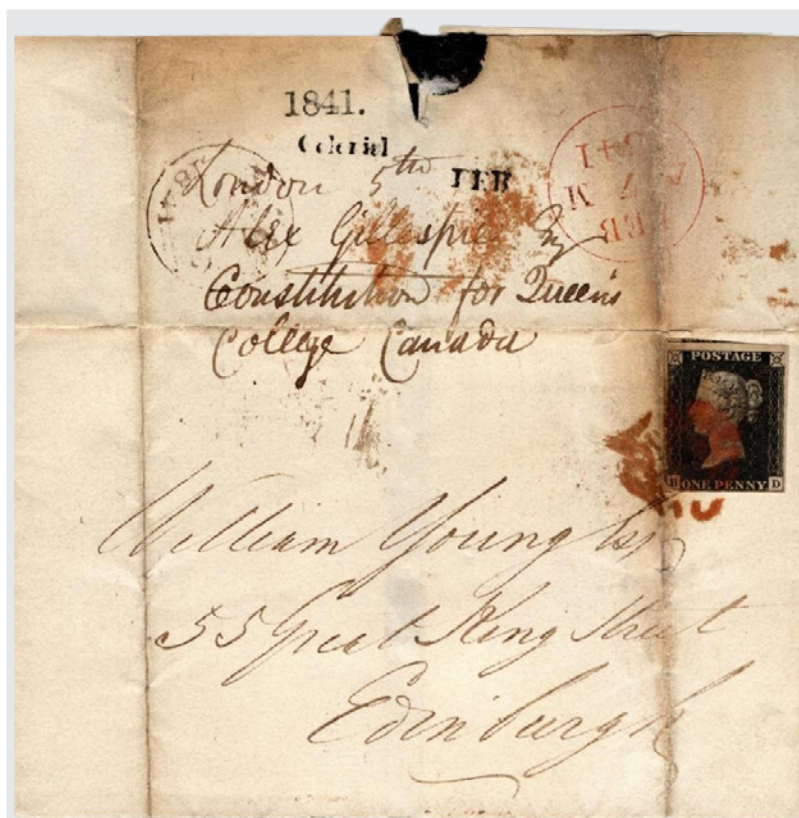 1841.
Colonial
FEB
London 5th
Alex Gillespie Esq
Constitution for Queen's
College Canada
POSTAGE
D
ONE PENNY
William Young Esq
55 Great King Street
Edinburgh